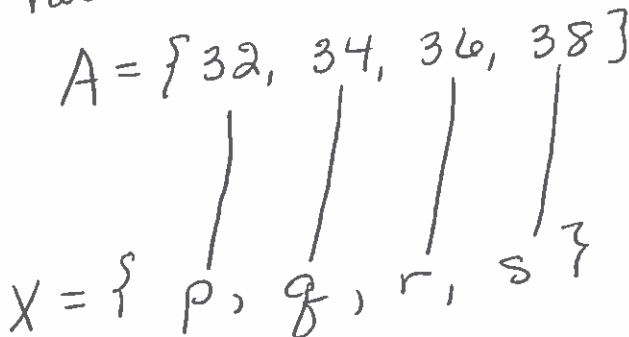 A = {32, 34, 36, 38}
X = { p, q, r, s }